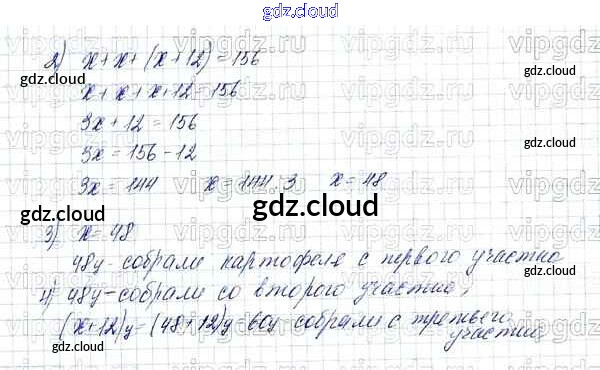 gdz.cloud
2) x+x+(x+12)=156
gdz.cloud
x+x+x+12=156
gdz.cloud
3x+12=156
3x=156-12
3x=144 x=144:3 x=48
gdz.cloud
gdz.cloud
3) x=48
48ц-собрали картофеля с первого участка
4) 48ц-собрали со второго участка,
(x+12)ц=(48+12)ц 60ц собрали с третьего
участка.
gdz.cloud
gdz.cloud